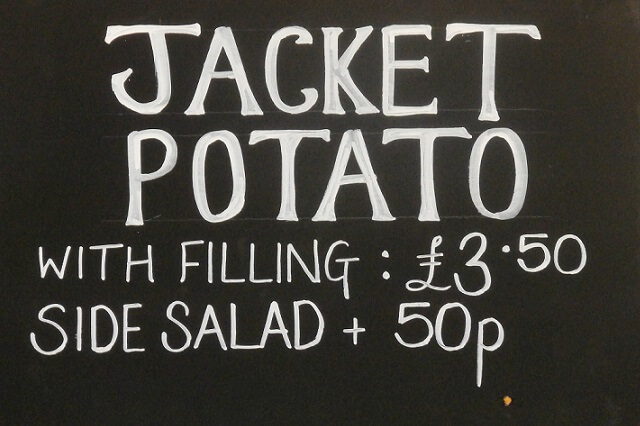 JACKET
POTATO
WITH FILLING : £3·50
SIDE SALAD + 50p